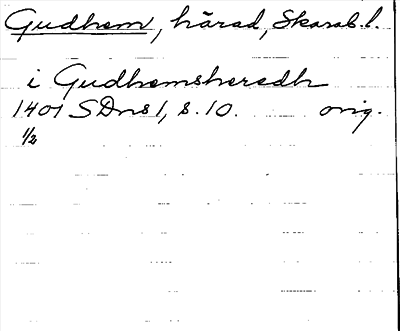 Gudhem, härad, Skarab. l.
i Gudhemsheredh
1401 SDns 1, s. 10. orig.
1/2